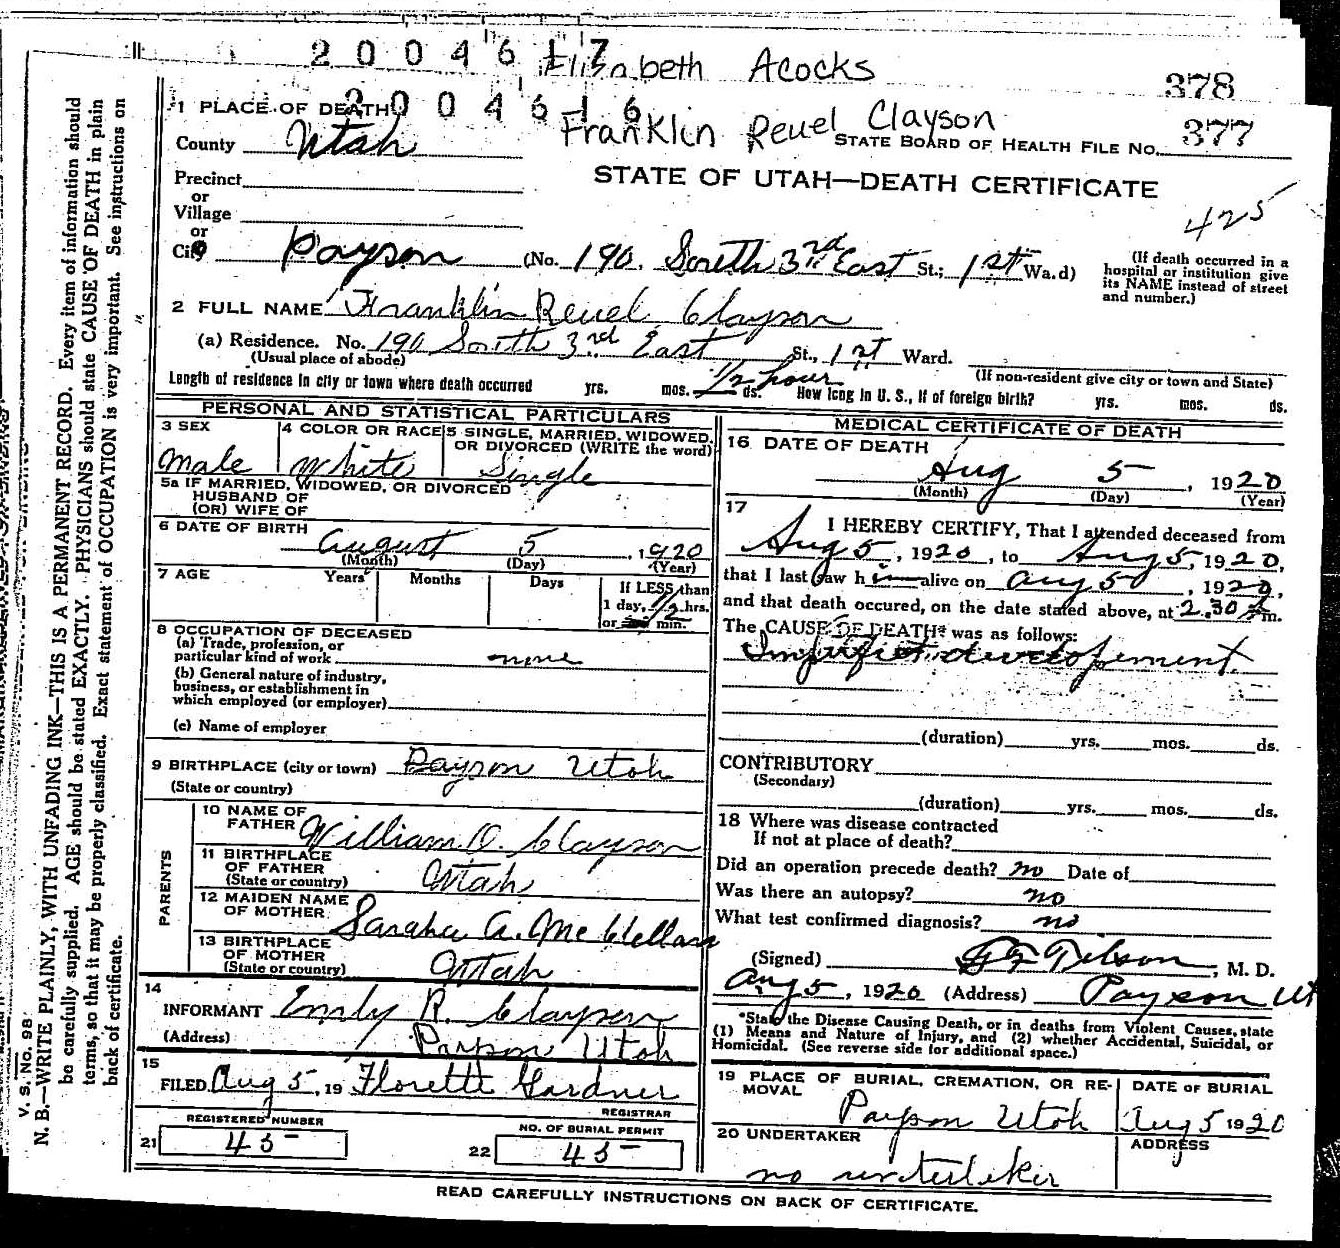 2004617
Elizabeth Acocks
378
1 PLACE OF DEATH
2004616
Franklin Reuel Clayson
STATE BOARD OF HEALTH FILE NO. 377
County Utah
STATE OF UTAH—DEATH CERTIFICATE
Precinct
or
Village
425
or
City Payson (No. 190. South 3rd East St.; 1st Wa.d)
(If death occurred in a
hospital or institution give
its NAME instead of street
and number.)
2 FULL NAME Franklin Reuel Clayson
(a) Residence. No. 190 South 3rd East St., 1st Ward.
(Usual place of abode)
(If non-resident give city or town and State)
Length of residence in city or town where death occurred yrs. mos. 1/2 hour ds. How long in U. S., if of foreign birth? yrs. mos. ds.
PERSONAL AND STATISTICAL PARTICULARS
3 SEX
Male
4 COLOR OR RACE
White
5 SINGLE, MARRIED, WIDOWED,
OR DIVORCED (WRITE the word)
Single
5a IF MARRIED, WIDOWED, OR DIVORCED
HUSBAND OF
(OR) WIFE OF
6 DATE OF BIRTH
August 5, 1920
(Month) (Day) (Year)
7 AGE Years Months Days
If LESS than
1 day, 1/2 hrs.
or min.
8 OCCUPATION OF DECEASED
(a) Trade, profession, or
particular kind of work none
(b) General nature of industry,
business, or establishment in
which employed (or employer)
(c) Name of employer
9 BIRTHPLACE (city or town) Payson Utah
(State or country)
PARENTS
10 NAME OF
FATHER William O. Clayson
11 BIRTHPLACE
OF FATHER
(State or country) Utah
12 MAIDEN NAME
OF MOTHER Sarah A. McClellan
13 BIRTHPLACE
OF MOTHER
(State or country) Utah
14
INFORMANT Emily R. Clayson
(Address) Payson Utah
15
FILED Aug 5, 19 Florette Gardner
REGISTRAR
REGISTERED NUMBER
21 45
NO. OF BURIAL PERMIT
22 45
MEDICAL CERTIFICATE OF DEATH
16 DATE OF DEATH
Aug 5, 1920
(Month) (Day) (Year)
17
I HEREBY CERTIFY, That I attended deceased from
Aug 5, 1920, to Aug 5, 1920,
that I last saw him alive on Aug 5, 1920,
and that death occured, on the date stated above, at 2.30 m.
The CAUSE OF DEATH* was as follows:
Imperfect developement.
(duration) yrs. mos. ds.
CONTRIBUTORY
(Secondary)
(duration) yrs. mos. ds.
18 Where was disease contracted
If not at place of death?
Did an operation precede death? no Date of
Was there an autopsy? no
What test confirmed diagnosis? no
(Signed) Tilson, M. D.
Aug 5, 1920 (Address) Payson Ut
*State the Disease Causing Death, or in deaths from Violent Causes, state
(1) Means and Nature of Injury, and (2) whether Accidental, Suicidal, or
Homicidal. (See reverse side for additional space.)
19 PLACE OF BURIAL, CREMATION, OR RE-
MOVAL
Payson Utah
DATE OF BURIAL
Aug 5 1920
20 UNDERTAKER
no undertaker
ADDRESS
READ CAREFULLY INSTRUCTIONS ON BACK OF CERTIFICATE.
V. S. NO. 98
N. B.—WRITE PLAINLY, WITH UNFADING INK—THIS IS A PERMANENT RECORD. Every item of information should
be carefully supplied. AGE should be stated EXACTLY. PHYSICIANS should state CAUSE OF DEATH in plain
terms, so that it may be properly classified. Exact statement of OCCUPATION is very important. See instructions on
back of certificate.